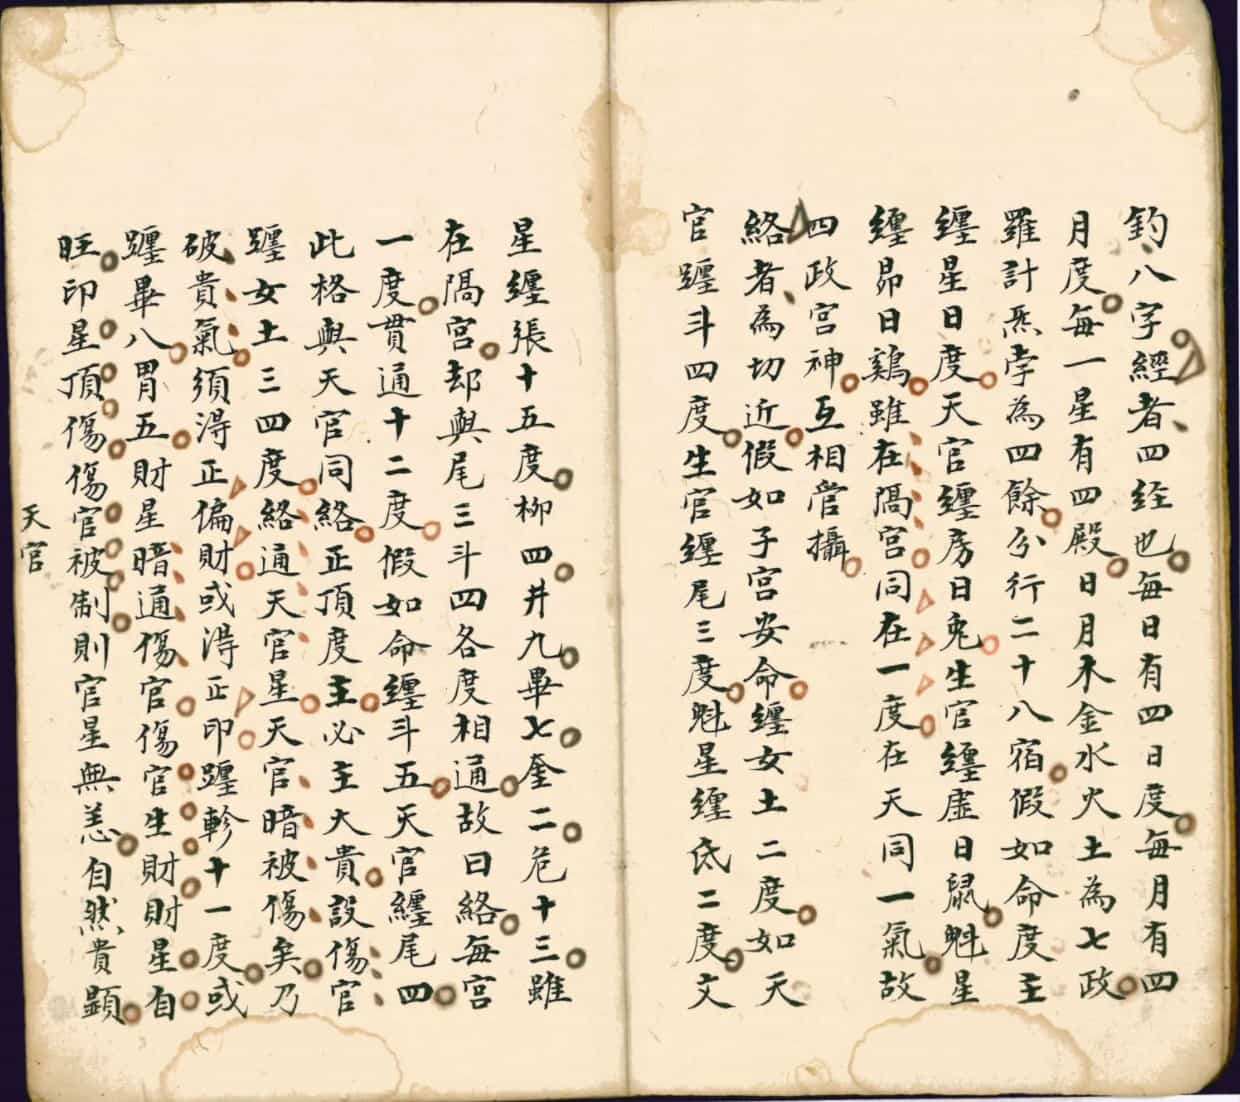 鈞八字經者四経也每日有四日度每月有四
月度每一星有四殿日月木金水火土為七政
羅計炁孛為四餘分行二十八宿假如命度主
纒星日度天官纒房日兎生官纒虛日鼠魁星
纒昴日鷄雖在隔宮同在一度在天同一氣故
四政宮神互相管攝
絡者為切近假如子宮安命纒女土二度如天
官躔斗四度生官纒尾三度魁星纒氐二度文
星纒張十五度柳四井九畢七奎二危十三雖
在隔宮却與尾三斗四各度相通故曰絡每宮
一度貫通十二度假如命纒斗五天官纒尾四
此格與天官同絡正頂度主必主大貴設傷官
躔女土三四度絡通天官星天官暗被傷矣乃
破貴氣須淂正偏財或淂正印躔軫十一度或
躔畢八胃五財星暗通傷官傷官生財財星自
旺印星頂傷傷官被制則官星無恙自然貴顯
天官